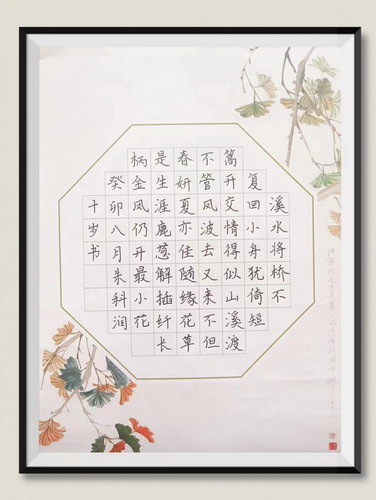 溪水将桥不
复回小舟犹倚短
篙开交情得似山溪渡
不管风波去又来不但
春妍夏亦佳随缘花草
是生涯鹿葱解插纤长
柄金风仍开最小花
癸卯八月朱科润
十岁书